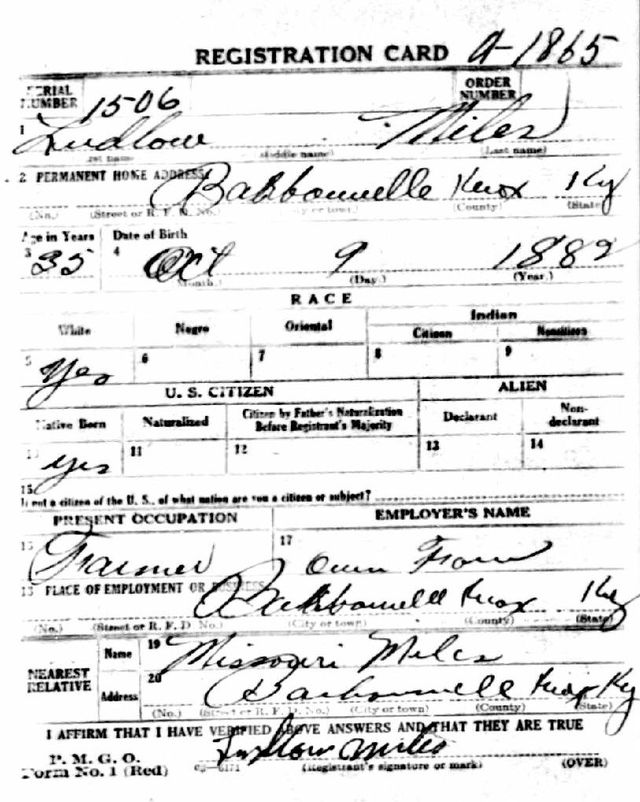 REGISTRATION CARD A-1865
SERIAL NUMBER 1506 ORDER NUMBER
1 Ludlow Miles
(First name) (Middle name) (Last name)
2 PERMANENT HOME ADDRESS: Barbourvelle Knox Ky
(No.) (Street or R. F. D. No.) (City or town) (County) (State)
Age in Years Date of Birth
3 35 4 Oct 9 1882
(Month.) (Day.) (Year.)
RACE
White Negro Oriental Indian
Citizen Noncitizen
5 Yes 6 7 8 9
U. S. CITIZEN ALIEN
Native Born Naturalized Citizen by Father's Naturalization Before Registrant's Majority Declarant Non-declarant
10 Yes 11 12 13 14
15
If not a citizen of the U. S., of what nation are you a citizen or subject?
PRESENT OCCUPATION EMPLOYER'S NAME
16 Farmer 17 Own Farm
18 PLACE OF EMPLOYMENT OR BUSINESS: Barbourvelle Knox Ky
(No.) (Street or R. F. D. No.) (City or town) (County) (State)
NEAREST RELATIVE Name 19 Missouri Miles
Address 20 Barbourvelle Knox Ky
(No.) (Street or R. F. D. No.) (City or town) (County) (State)
I AFFIRM THAT I HAVE VERIFIED ABOVE ANSWERS AND THAT THEY ARE TRUE
P. M. G. O.
Form No. 1 (Red) Ludlow Miles
(Registrant's signature or mark) (OVER)